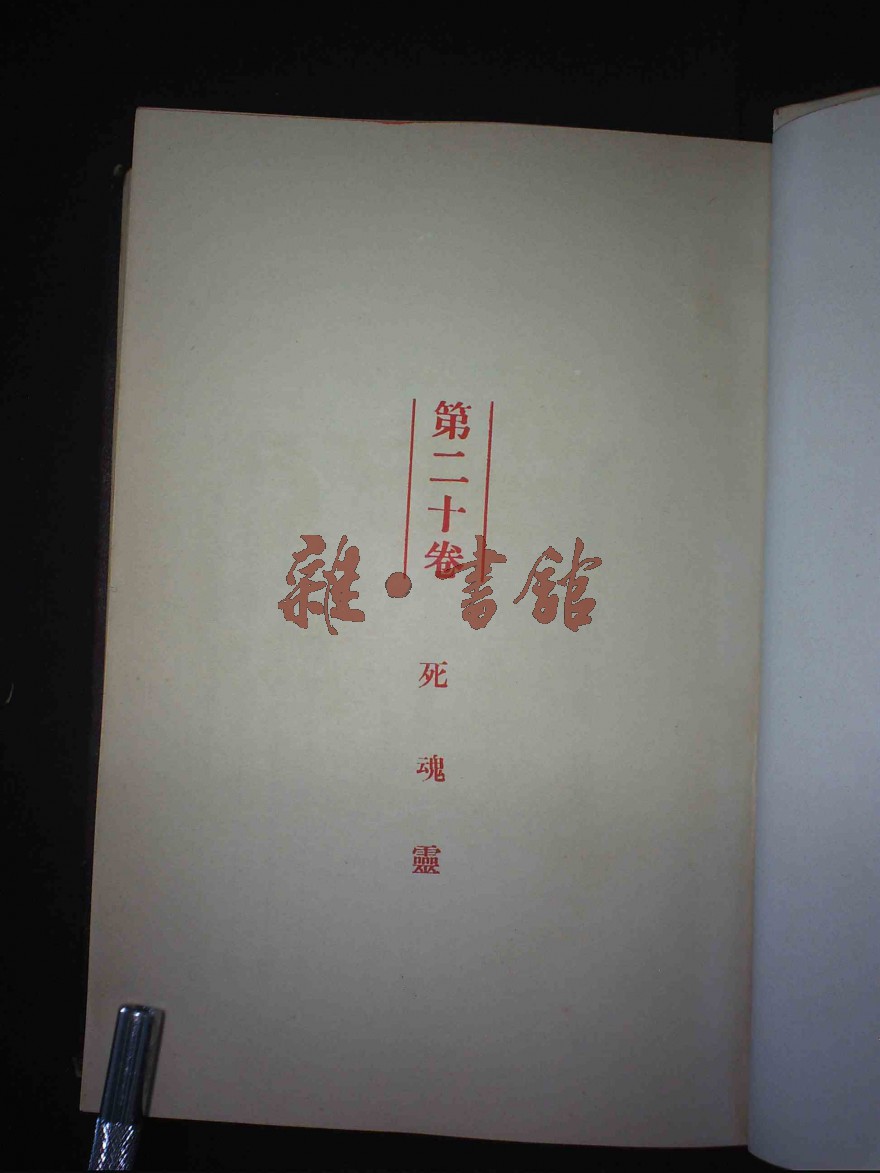 第二十卷
雜·書館
死魂靈